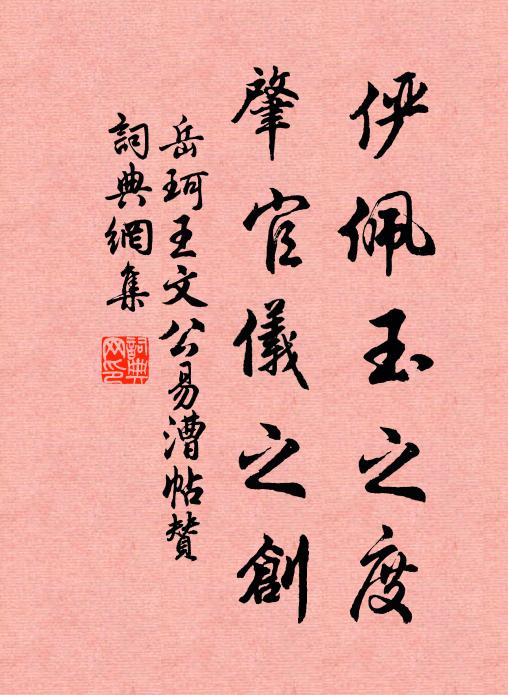 俨佩玉之度
肇官儀之創
岳珂王文公易漕帖贊
詞典網集
詞典网印